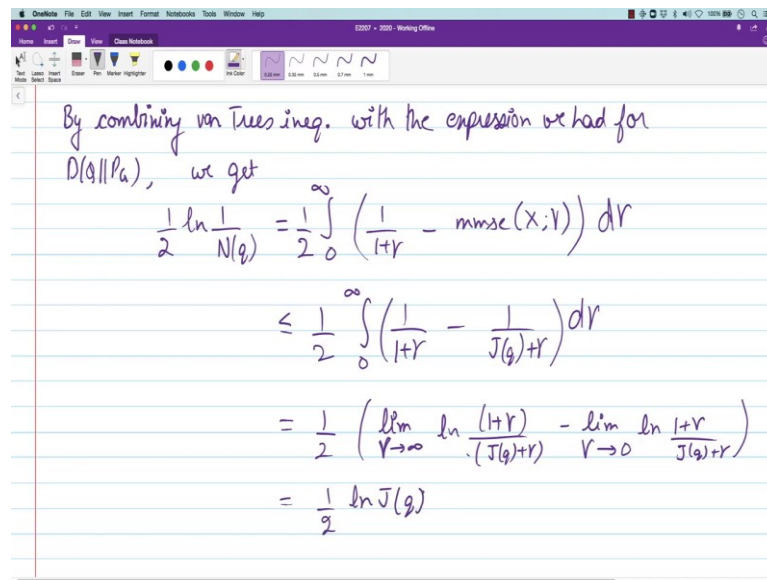 OneNote File Edit View Insert Format Notebooks Tools Window Help 100%
E2207 - 2020 - Working Offline
Home Insert Draw View Class Notebook
Text Mode Lasso Select Insert Space Eraser Pen Marker Highlighter Ink Color 0.25 mm 0.35 mm 0.5 mm 0.7 mm 1 mm
By combining van Trees ineq. with the expression we had for
D(Q||P_G), we get
1/2 ln 1/N(q) = 1/2 ∫_0^∞ (1/(1+γ) - mmse(X;γ)) dγ
≤ 1/2 ∫_0^∞ (1/(1+γ) - 1/(J(q)+γ)) dγ
= 1/2 (lim_{γ→∞} ln (1+γ)/(J(q)+γ) - lim_{γ→0} ln (1+γ)/(J(q)+γ))
= 1/2 ln J(q)